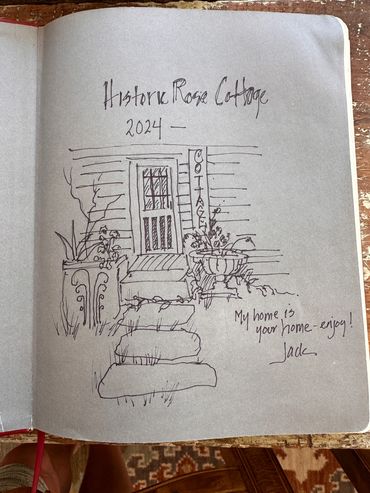 Historic Rose Cottage
2024 —
COTTAGE
My home is
your home - enjoy!
Jack